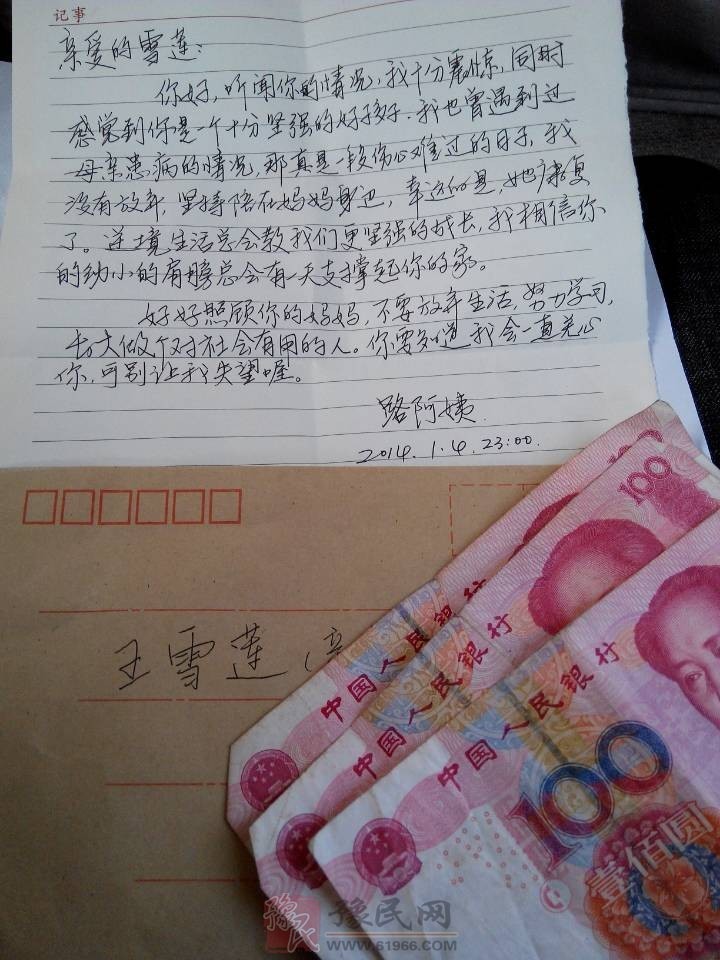 记事
亲爱的雪莲:
你好,听闻你的情况,我十分震惊,同时
感觉到你是一个十分坚强的好孩子.我也曾遇到过
母亲患病的情况,那真是一段伤心难过的日子,我
没有放弃,坚持陪在妈妈身边,幸运的是,她康复
了。逆境生活总会教我们更坚强的成长,我相信你
的幼小的肩膀总会有一天支撑起你的家。
好好照顾你的妈妈,不要放弃生活,努力学习,
长大做个对社会有用的人。你要知道我会一直关心
你,可别让我失望喔。
路阿姨
2014.1.4.23:00.
王雪莲(
100
100
中国人民银行
中国人民银行
中国人民银行
100
壹佰圆
豫民
豫民网
WWW.61966.COM